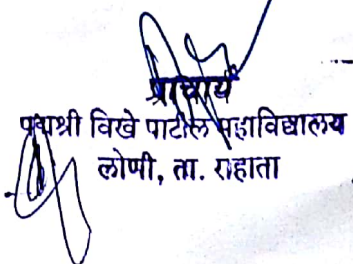 प्राचार्य
पद्मश्री विखे पाटील महाविद्यालय
लोणी, ता. राहाता